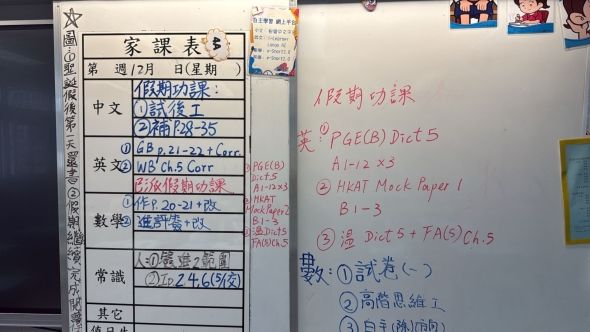 家課表 5
第 週12月 日(星期 )
中文
假期功課:
①試後工
②補P.28-35
英文
①GB p.21-22 + Corr.
②WB Ch.5 Corr
已派假期功課
數學
①作P. 20-21 + 改
②進評 + 改
常識
②Ip 2.4.6(5/交)
其它
圖:①聖誕假後第一天還書②假期繼續完成閱讀
自主學習 網上平台
PGE(B)
Dict 5
A1-12×3
②HKAT
Mock Paper
B1-3
③溫Dict 5
FA(5)Ch.5
假期功課
英:①PGE(B) Dict 5
A1-12 ×3
②HKAT Mock Paper 1
B1-3
③溫 Dict 5 + FA(5) Ch.5
數:①試卷(一)
②高階思維工